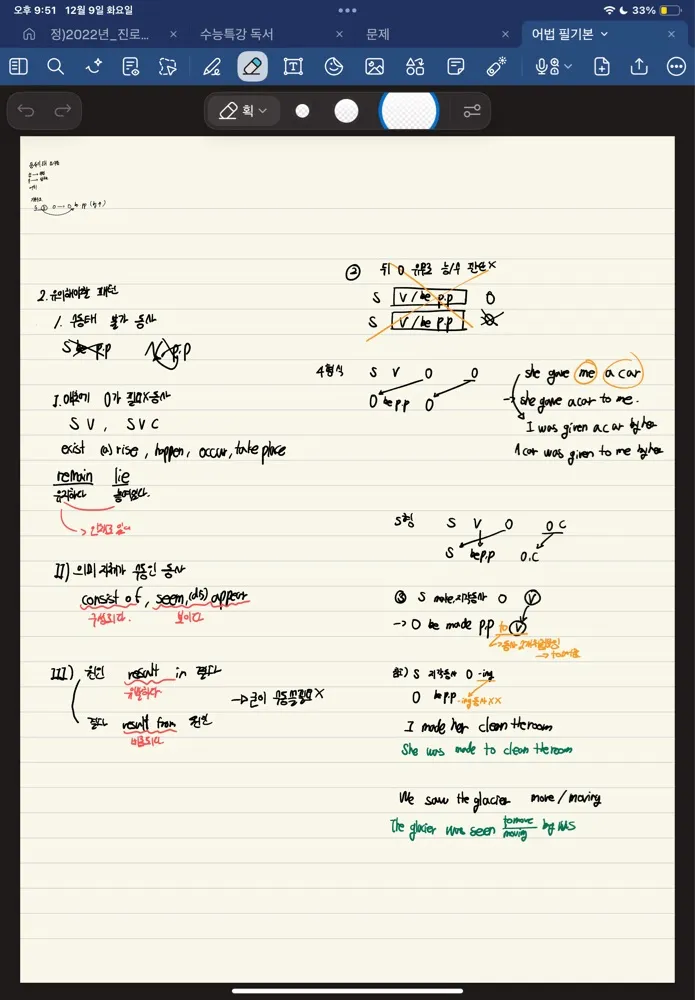 오후 9:51 12월 9일 화요일
33%
정)2022년_진로...
수능특강 독서
문제
어법 필기본
획
2. 유의해야할 패턴
1. 수동태 불가 동사
S be p.p
p.p
I. 애초에 O가 필요X 동사
S V , S V C
exist (a)rise, happen, occur, take place
remain lie
유지하다 놓여있다.
II) 의미 자체가 수동인 동사
consist of, seem, (dis)appear
구성되다. 보이다
III) 원인 result in 결과
유발하다
결과 result from 원인
비롯되다
→ 굳이 수동 쓸필요 X
② 뒤 O 유무로 능/수 판단X
S V/be p.p O
S V/be p.p O
4형식 S V O O
O be p.p O
she gave me a car
→ she gave a car to me.
I was given a car by her
A car was given to me by her
5형 S V O O C
S be p.p O.C
③ S make, 지각동사 O V
→ O be made p.p to V
→ to이용
S 지각동사 O -ing
O be p.p -ing
I made her clean the room
She was made to clean the room
We saw the glacier move/moving
The glacier was seen to move/moving by us